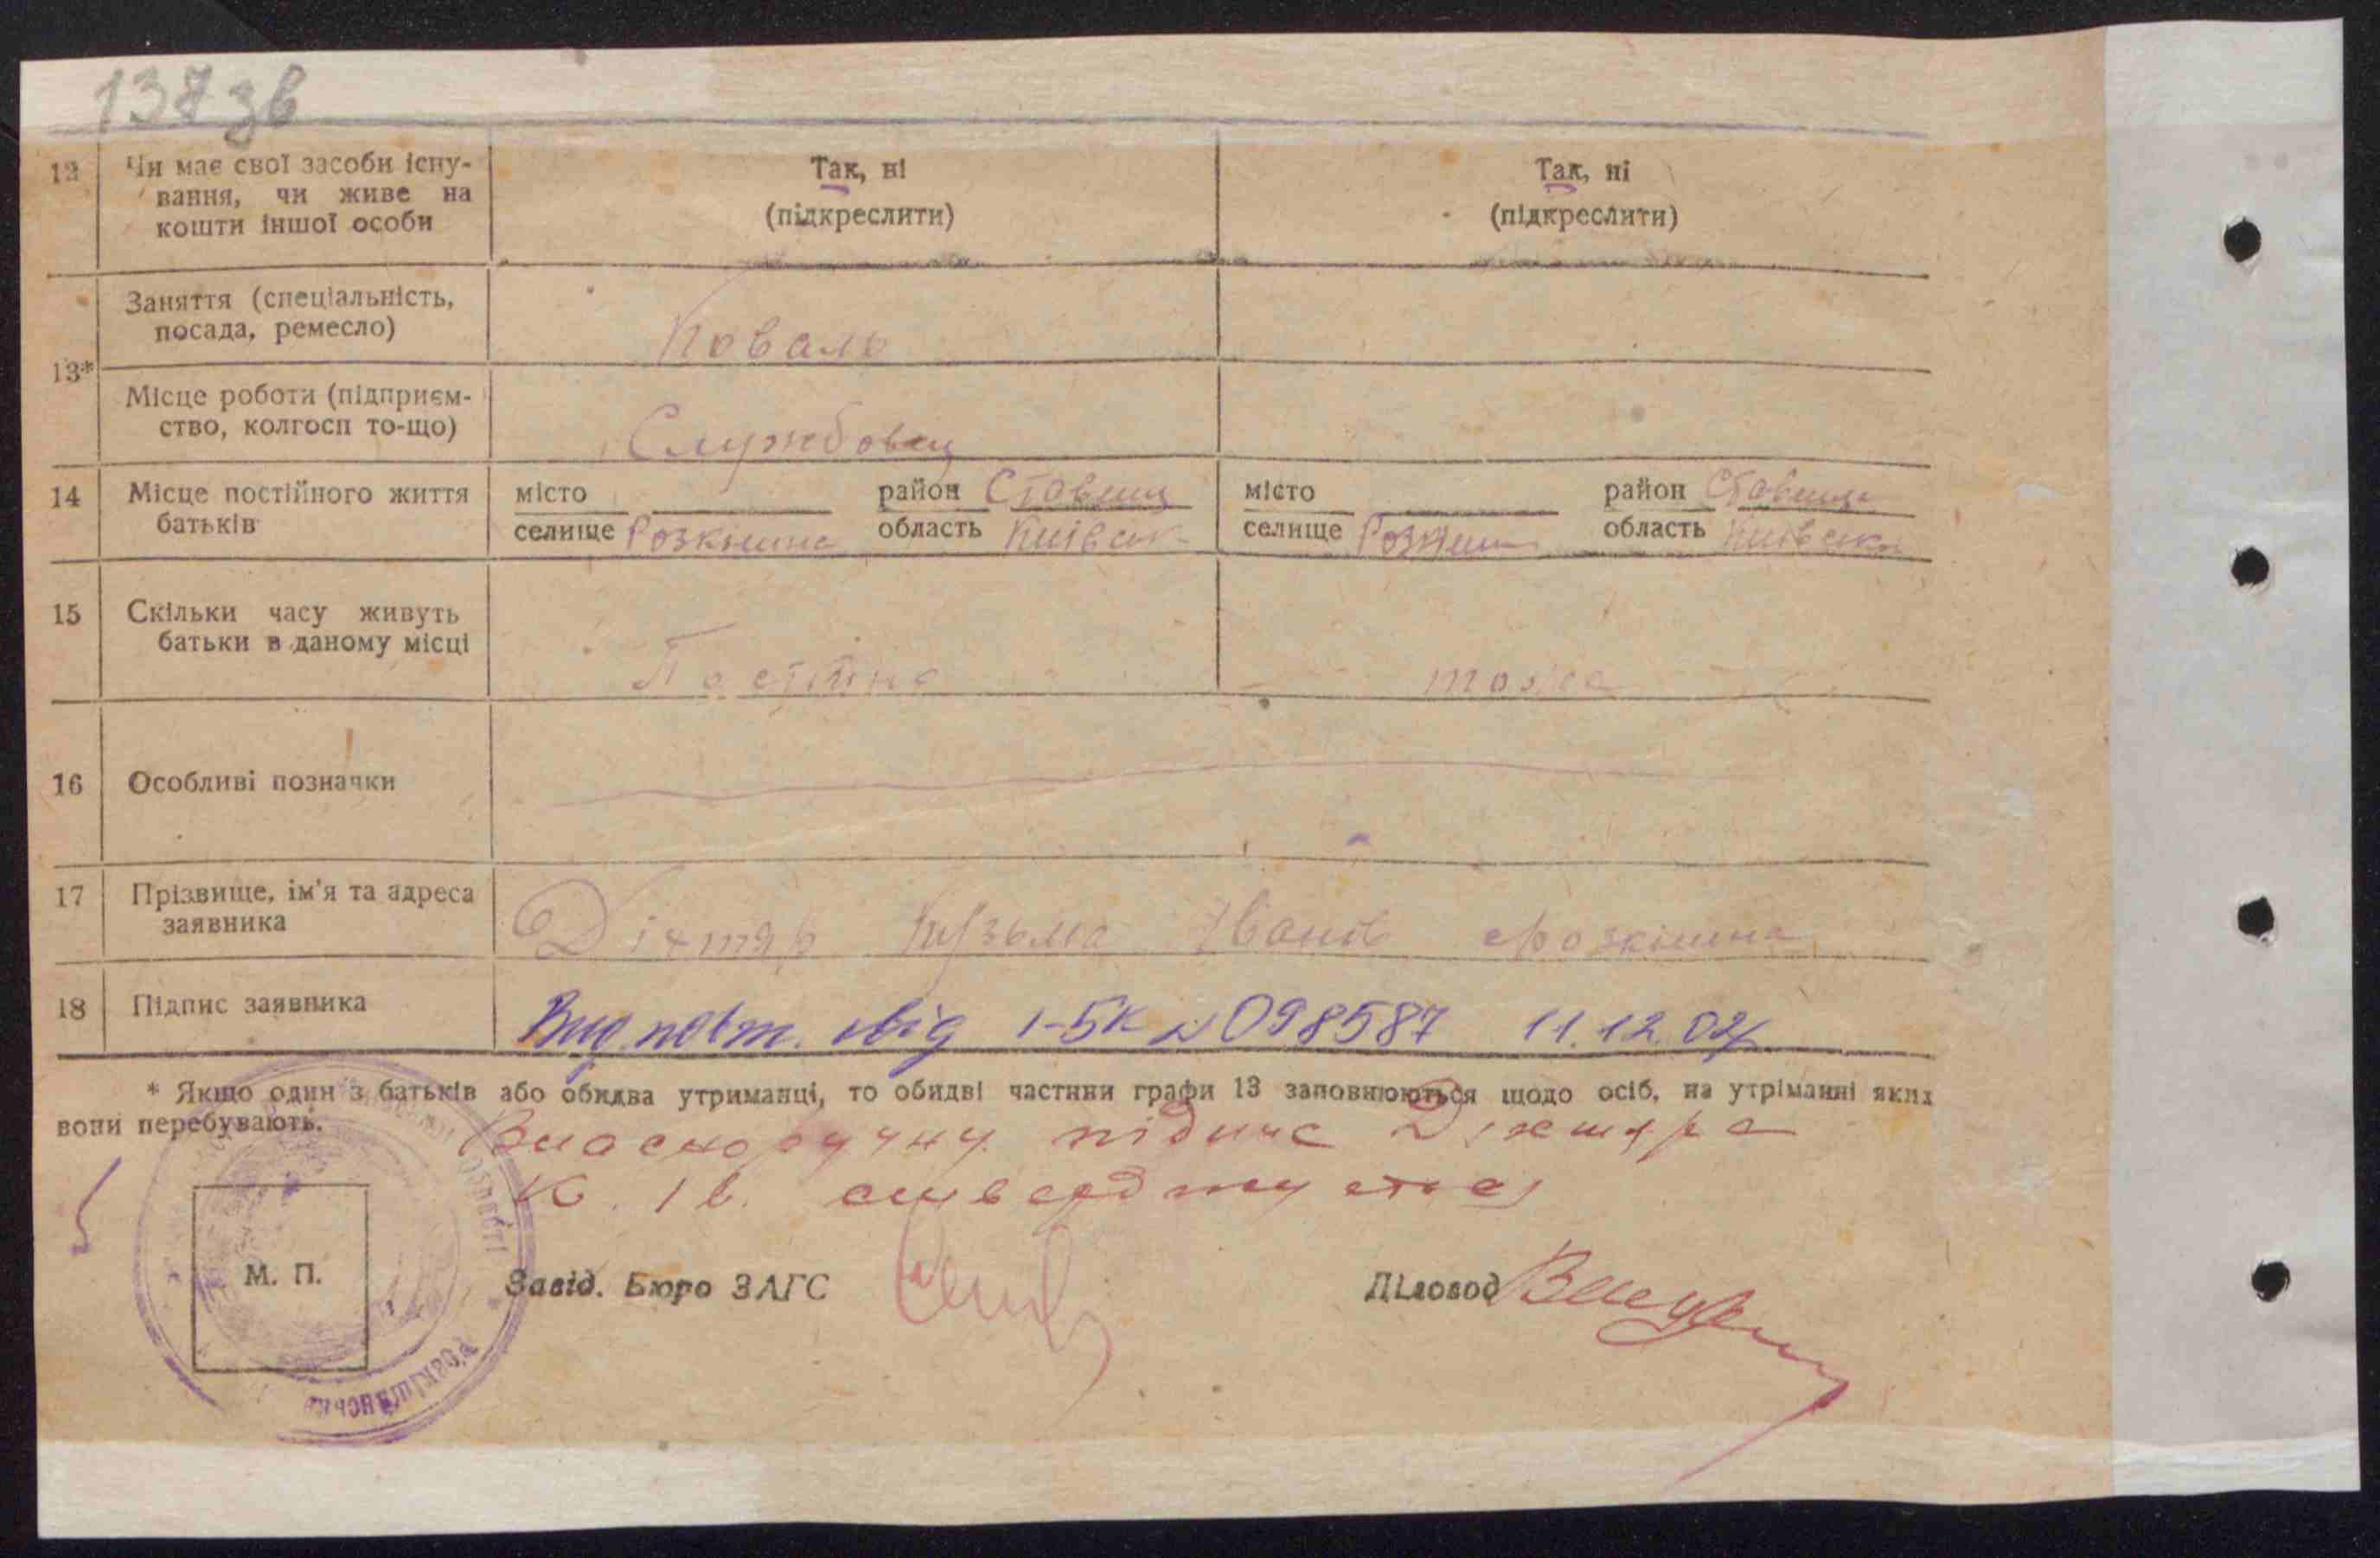 137 зв
12 Чи має свої засоби існу-
вання, чи живе на
кошти іншої особи
Так, ні
(підкреслити)
Так, ні
(підкреслити)
13*
Заняття (спеціальність,
посада, ремесло)
Коваль
Місце роботи (підприєм-
ство, колгосп то-що)
Службовец
14 Місце постійного життя
батьків
місто район Ставищ
селище Розкішна область Київськ
місто район Ставище
селище область Київська
15 Скільки часу живуть
батьки в даному місці
Постійно
тоже
16 Особливі позначки
17 Прізвище, ім'я та адреса
заявника
Діхтяр Кузьма Іванов с Розкішна
18 Підпис заявника
Вид. повт. свід 1-БК № 098587 11.12.02
* Якщо один з батьків або обидва утриманці, то обидві частини графи 13 заповнюються щодо осіб, на утріманні яких
вони перебувають.
Власноручну підпис Діхтяра
К. Ів. стверджується
М. П.
Завід. Бюро ЗАГС
Діловод
Розкішнянська